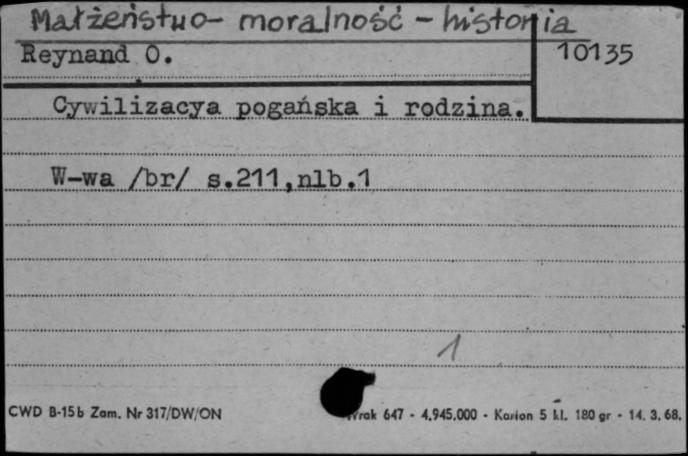 Małżeństwo - moralność - historia
Reynand O.
10135
Cywilizacya pogańska i rodzina.
W-wa /br/ s.211,nlb.1
1
CWD B-15b Zam. Nr 317/DW/ON
647 - 4.945.000 - Karton 5 kl. 180 gr - 14. 3. 68.